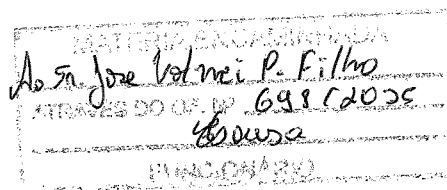 MATÉRIA ENCAMINHADA
Ao Sr. Jose Volmei P. Filho
ATRAVÉS DO OF. Nº 698/2025
Sousa
FUNCIONÁRIO